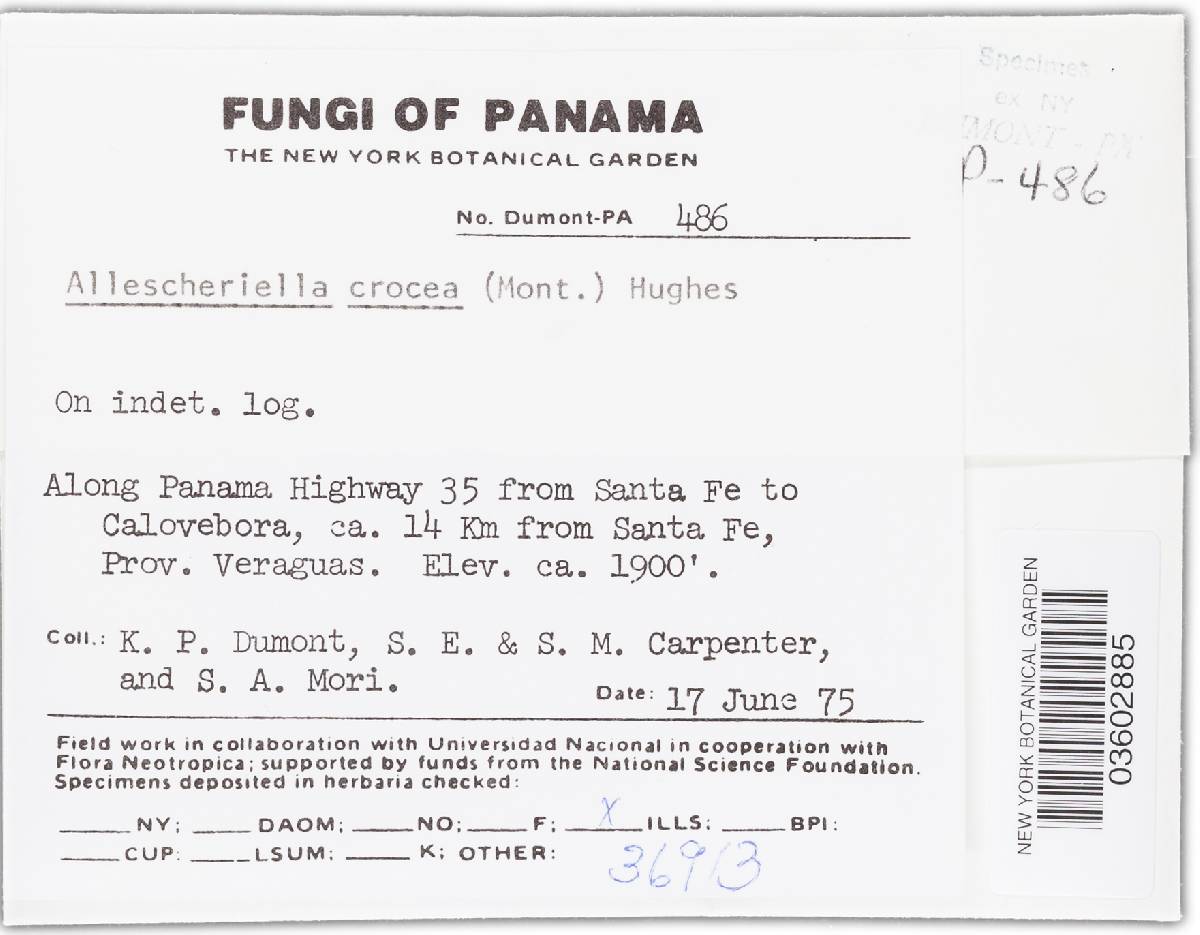 FUNGI OF PANAMA
THE NEW YORK BOTANICAL GARDEN
No. Dumont-PA 486
Allescheriella crocea (Mont.) Hughes
On indet. log.
Along Panama Highway 35 from Santa Fe to
Calovebora, ca. 14 Km from Santa Fe,
Prov. Veraguas. Elev. ca. 1900'.
Coll.: K. P. Dumont, S. E. & S. M. Carpenter,
and S. A. Mori.
Date: 17 June 75
Field work in collaboration with Universidad Nacional in cooperation with
Flora Neotropica; supported by funds from the National Science Foundation.
Specimens deposited in herbaria checked:
____NY; ____DAOM; ____NO; ____F; __X__ILLS; ____BPI:
____CUP: ____LSUM: ____K; OTHER:
36913
Specimen
ex NY
P-486
NEW YORK BOTANICAL GARDEN
03602885